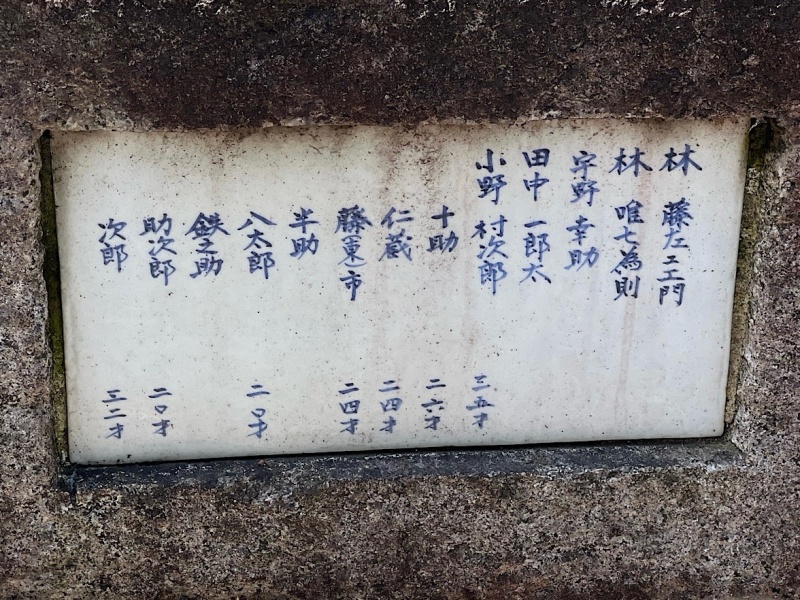 林 藤左ヱ門
林 唯七為則
宇野 幸助
田中 一郎太
小野 村次郎 三五才
十助 二六才
仁蔵 二四才
藤(東)市 二四才
半助
八太郎 二〇才
鉄之助
助次郎 二〇才
次郎 三二才